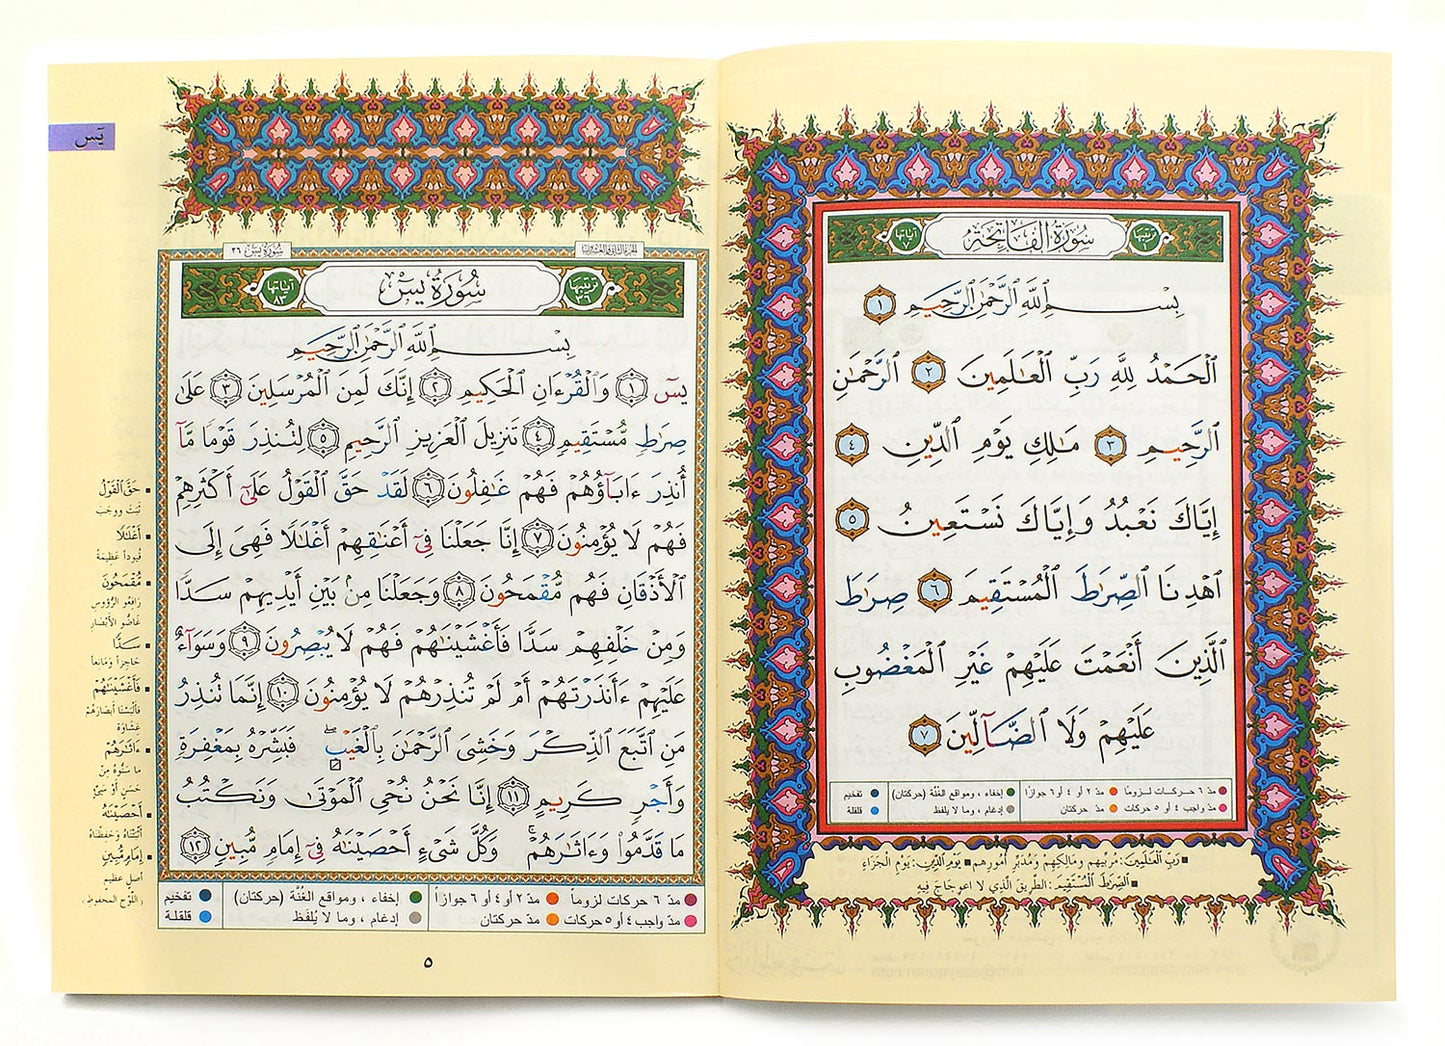 سُورَةُ الفَاتِحَةِ
ترتيبها ١
آياتها ٧
بِسْمِ ٱللَّهِ ٱلرَّحْمَٰنِ ٱلرَّحِيمِ ١
ٱلْحَمْدُ لِلَّهِ رَبِّ ٱلْعَٰلَمِينَ ٢ ٱلرَّحْمَٰنِ
ٱلرَّحِيمِ ٣ مَٰلِكِ يَوْمِ ٱلدِّينِ ٤
إِيَّاكَ نَعْبُدُ وَإِيَّاكَ نَسْتَعِينُ ٥
ٱهْدِنَا ٱلصِّرَٰطَ ٱلْمُسْتَقِيمَ ٦ صِرَٰطَ
ٱلَّذِينَ أَنْعَمْتَ عَلَيْهِمْ غَيْرِ ٱلْمَغْضُوبِ
عَلَيْهِمْ وَلَا ٱلضَّآلِّينَ ٧
مدّ ٦ حركات لزوماً مدّ ٢ أو ٤ أو ٦ جوازاً إخفاء ، ومواقع الغُنَّة (حركتان) تفخيم
مدّ واجب ٤ أو ٥ حركات مدّ حركتان إدغام ، وما لا يلفظ قلقلة
رَبِّ العَالَمِينَ: مُرَبِّيهِم ومَالِكِهِمْ وَمُدَبِّرِ أُمُورِهِم يَوْمِ الدِّينِ: يَوْمِ الْجَزَاءِ
الصِّرَاطَ الْمُسْتَقِيمَ: الطَّرِيقَ الَّذِي لا اعوجَاجَ فِيهِ
يسٓ
سُورَةُ يسٓ ٣٦
سُورَةُ يسٓ
ترتيبها ٣٦
آياتها ٨٣
بِسْمِ ٱللَّهِ ٱلرَّحْمَٰنِ ٱلرَّحِيمِ
يسٓ ١ وَٱلْقُرْءَانِ ٱلْحَكِيمِ ٢ إِنَّكَ لَمِنَ ٱلْمُرْسَلِينَ ٣ عَلَىٰ
صِرَٰطٍ مُّسْتَقِيمٍ ٤ تَنزِيلَ ٱلْعَزِيزِ ٱلرَّحِيمِ ٥ لِتُنذِرَ قَوْمًا مَّآ
أُنذِرَ ءَابَآؤُهُمْ فَهُمْ غَٰفِلُونَ ٦ لَقَدْ حَقَّ ٱلْقَوْلُ عَلَىٰٓ أَكْثَرِهِمْ
فَهُمْ لَا يُؤْمِنُونَ ٧ إِنَّا جَعَلْنَا فِىٓ أَعْنَٰقِهِمْ أَغْلَٰلًا فَهِىَ إِلَى
ٱلْأَذْقَانِ فَهُم مُّقْمَحُونَ ٨ وَجَعَلْنَا مِنۢ بَيْنِ أَيْدِيهِمْ سَدًّا
وَمِنْ خَلْفِهِمْ سَدًّا فَأَغْشَيْنَٰهُمْ فَهُمْ لَا يُبْصِرُونَ ٩ وَسَوَآءٌ
عَلَيْهِمْ ءَأَنذَرْتَهُمْ أَمْ لَمْ تُنذِرْهُمْ لَا يُؤْمِنُونَ ١٠ إِنَّمَا تُنذِرُ
مَنِ ٱتَّبَعَ ٱلذِّكْرَ وَخَشِىَ ٱلرَّحْمَٰنَ بِٱلْغَيْبِ ۖ فَبَشِّرْهُ بِمَغْفِرَةٍ
وَأَجْرٍ كَرِيمٍ ١١ إِنَّا نَحْنُ نُحْىِ ٱلْمَوْتَىٰ وَنَكْتُبُ
مَا قَدَّمُوا۟ وَءَاثَٰرَهُمْ ۚ وَكُلَّ شَىْءٍ أَحْصَيْنَٰهُ فِىٓ إِمَامٍ مُّبِينٍ ١٢
حَقَّ الْقَوْلُ
ثَبَتَ وَوَجَبَ
أَغْلَالًا
قُيوداً عَظِيمَةً
مُّقْمَحُونَ
رَافِعُو الرُّؤوسِ
غَاضُّو الأَبْصَارِ
سَدًّا
حَاجِزاً وَمَانِعاً
فَأَغْشَيْنَٰهُمْ
فَأَلْبَسْنَا أَبصَارَهُمْ
غِشَاوَة
ءَاثَٰرَهُمْ
مَا سَنُّوهُ مِنْ
حَسَنٍ أَوْ سَيِّئٍ
أَحْصَيْنَٰهُ
أَثْبَتْنَاهُ وَحَفِظْنَاهُ
إِمَامٍ مُّبِينٍ
أَصلٍ عَظِيمٍ
(اللَّوْحِ المحفُوظِ)
مدّ ٦ حركات لزوماً مدّ ٢ أو ٤ أو ٦ جوازاً إخفاء ، ومواقع الغُنَّة (حركتان) تفخيم
مدّ واجب ٤ أو ٥ حركات مدّ حركتان إدغام ، وما لا يُلفَظ قلقلة
٥